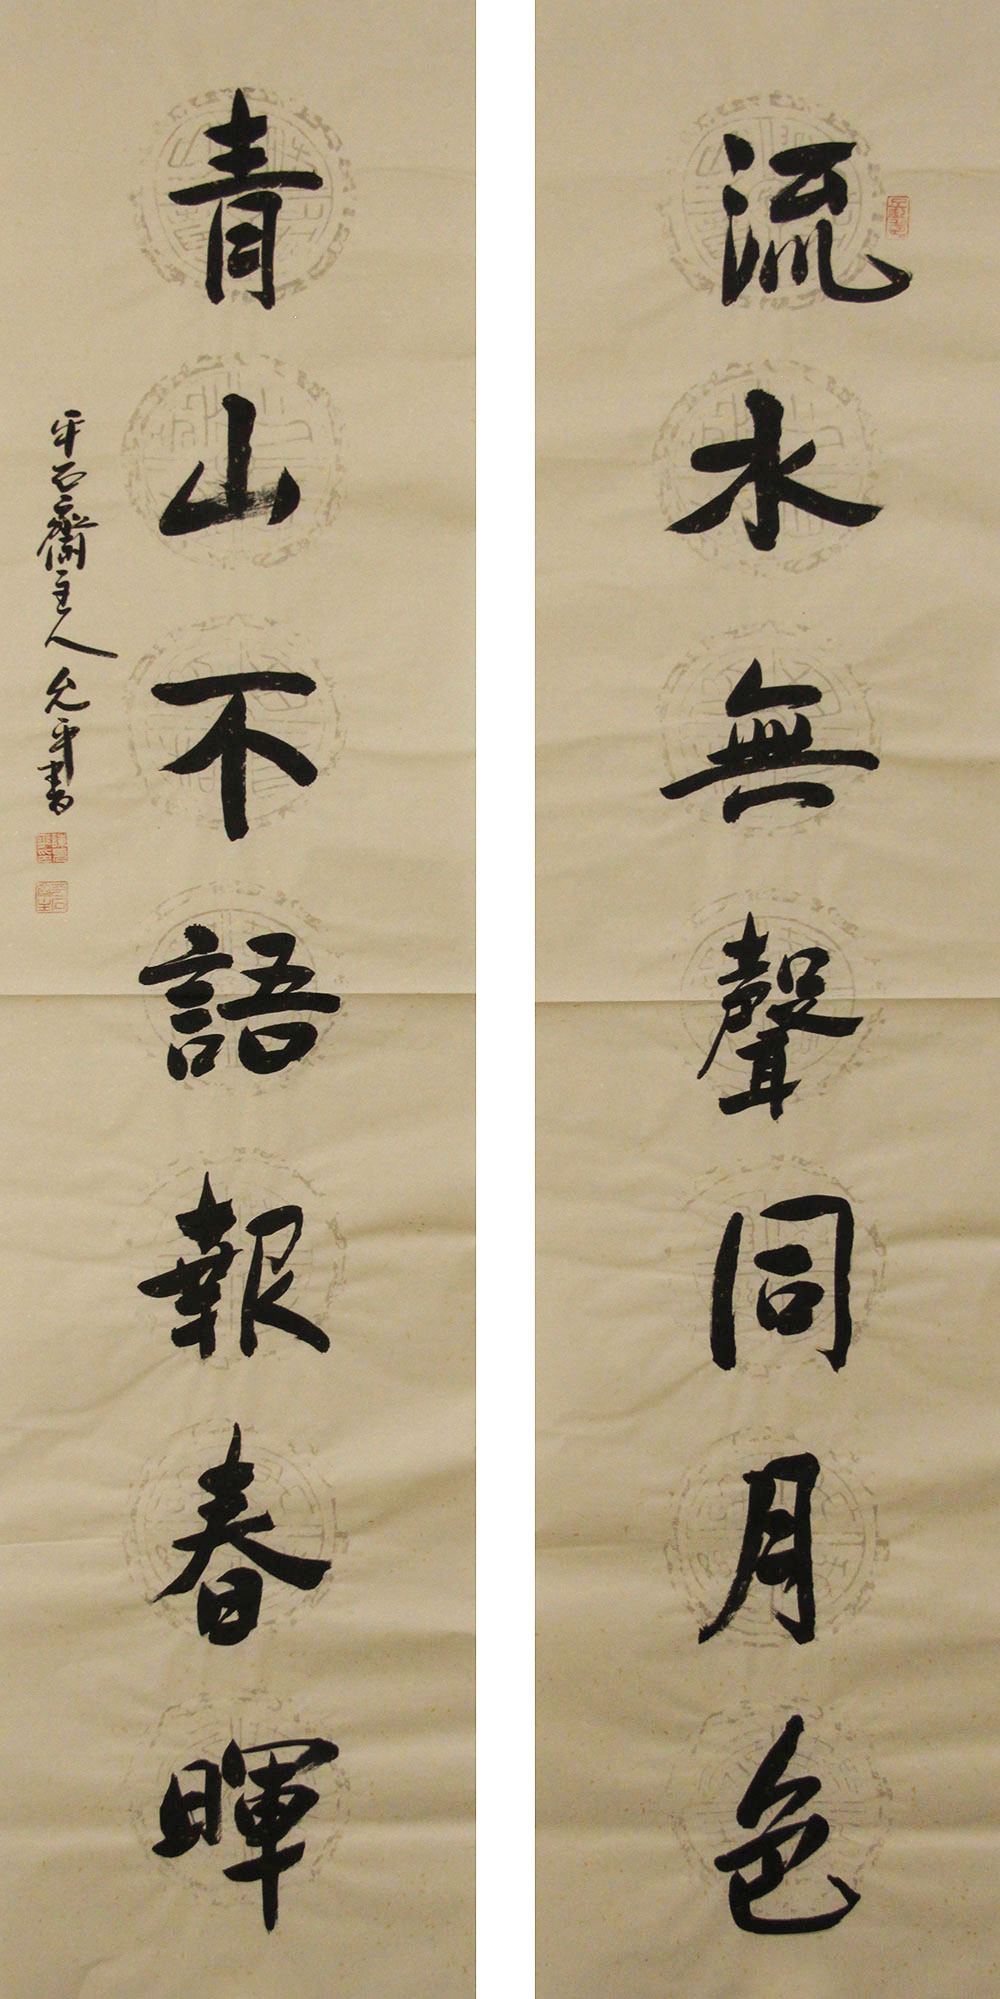 流水無聲同月色
青山不語報春暉
平石齋主人允平書